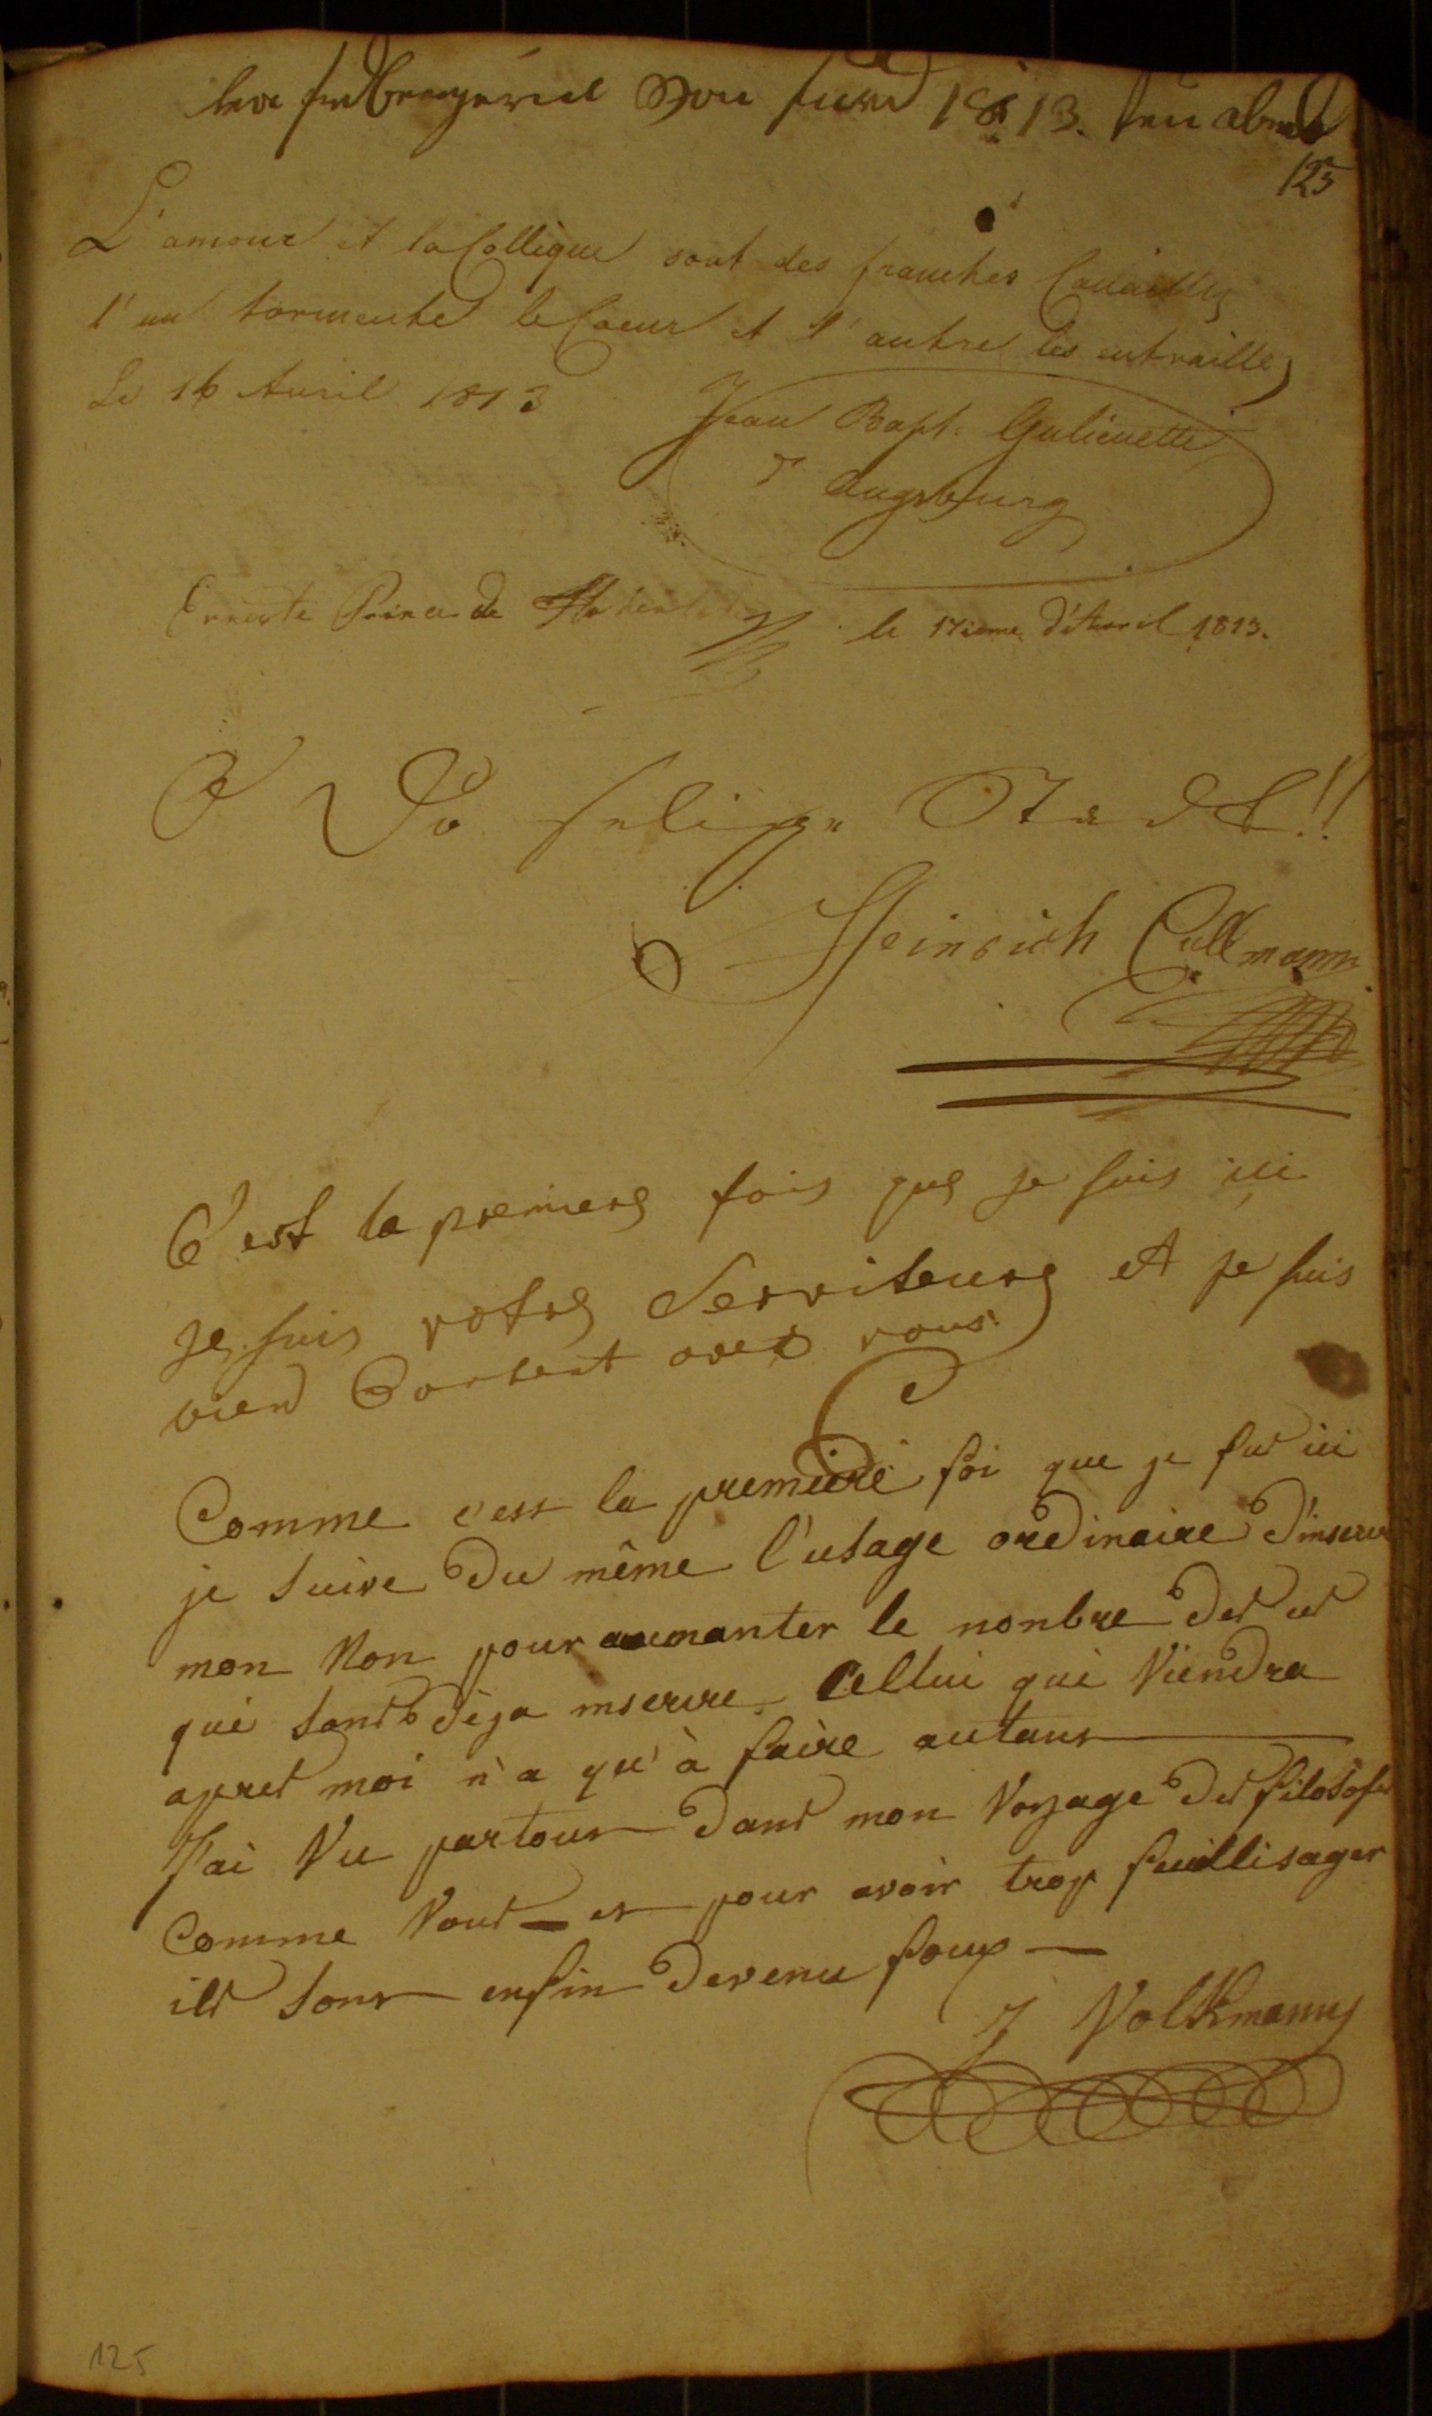 1813. den abend
125
L'amour et la Collique sont des franches Canailles
l'un tormente le Coeur et l'autre les entrailles
Le 16 Avril 1813 Jean Bapt.
d'Augsburg
Erneste Prince de le 17ieme d'Avril 1813.
O Du selige Stadt!!
Heinrich Cullmann
C'est la premiere fois que je suis ici
je suis votre Serviteure et je suis
bien Content avec vous
Comme c'est la premiere foi que je sus ici
je suive du même l'usage ordinaire d'inserer
mon Non pour aucmanter le nonbre des ces
qui sont déja inscrire. Cellui qui Viendra
apres moi n'a qu'à faire autant
J'ai Vu partout dans mon Voyage des filosofes
Comme Vous - et pour avoir trop
ils sont enfin devenu foux -
J Volkmann
125